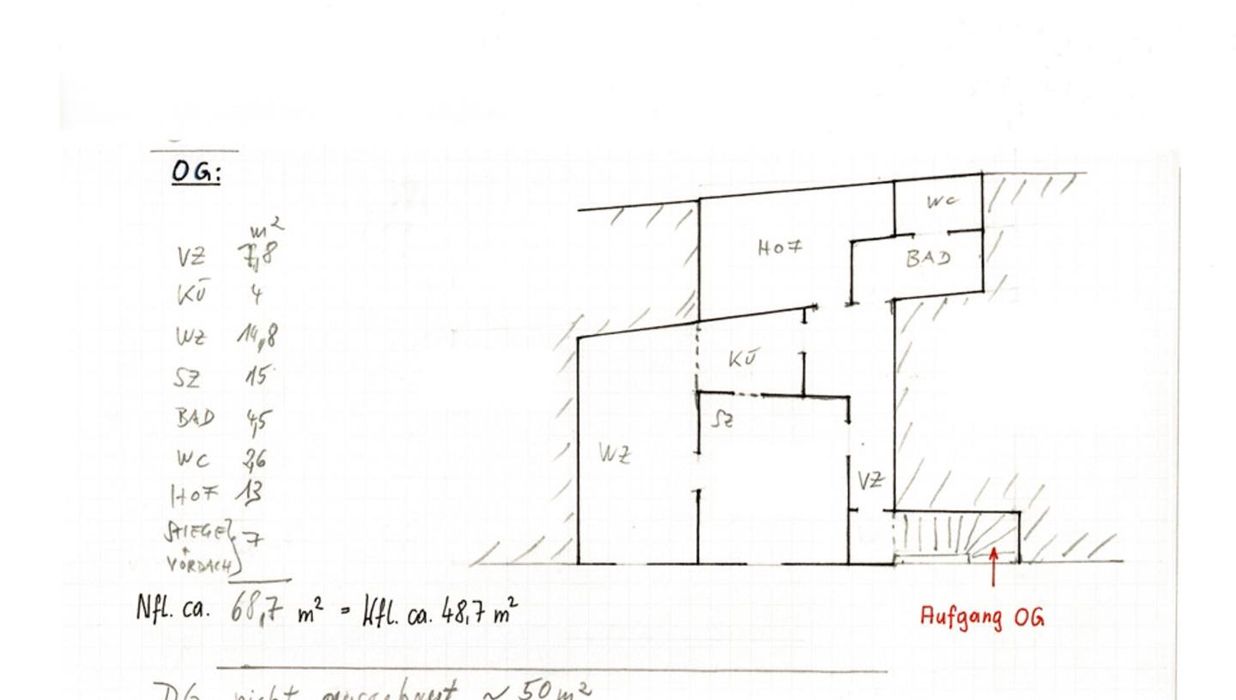 OG:
m²
VZ 7,8
KÜ 4
WZ 14,8
SZ 15
BAD 4,5
WC 2,6
HOF 13
STIEGE
+
VORDACH } 7
Nfl. ca. 68,7 m² = Wfl. ca. 48,7 m²
DG nicht ausgebaut ~ 50 m²
WC
HOF
BAD
KÜ
SZ
WZ
VZ
Aufgang OG